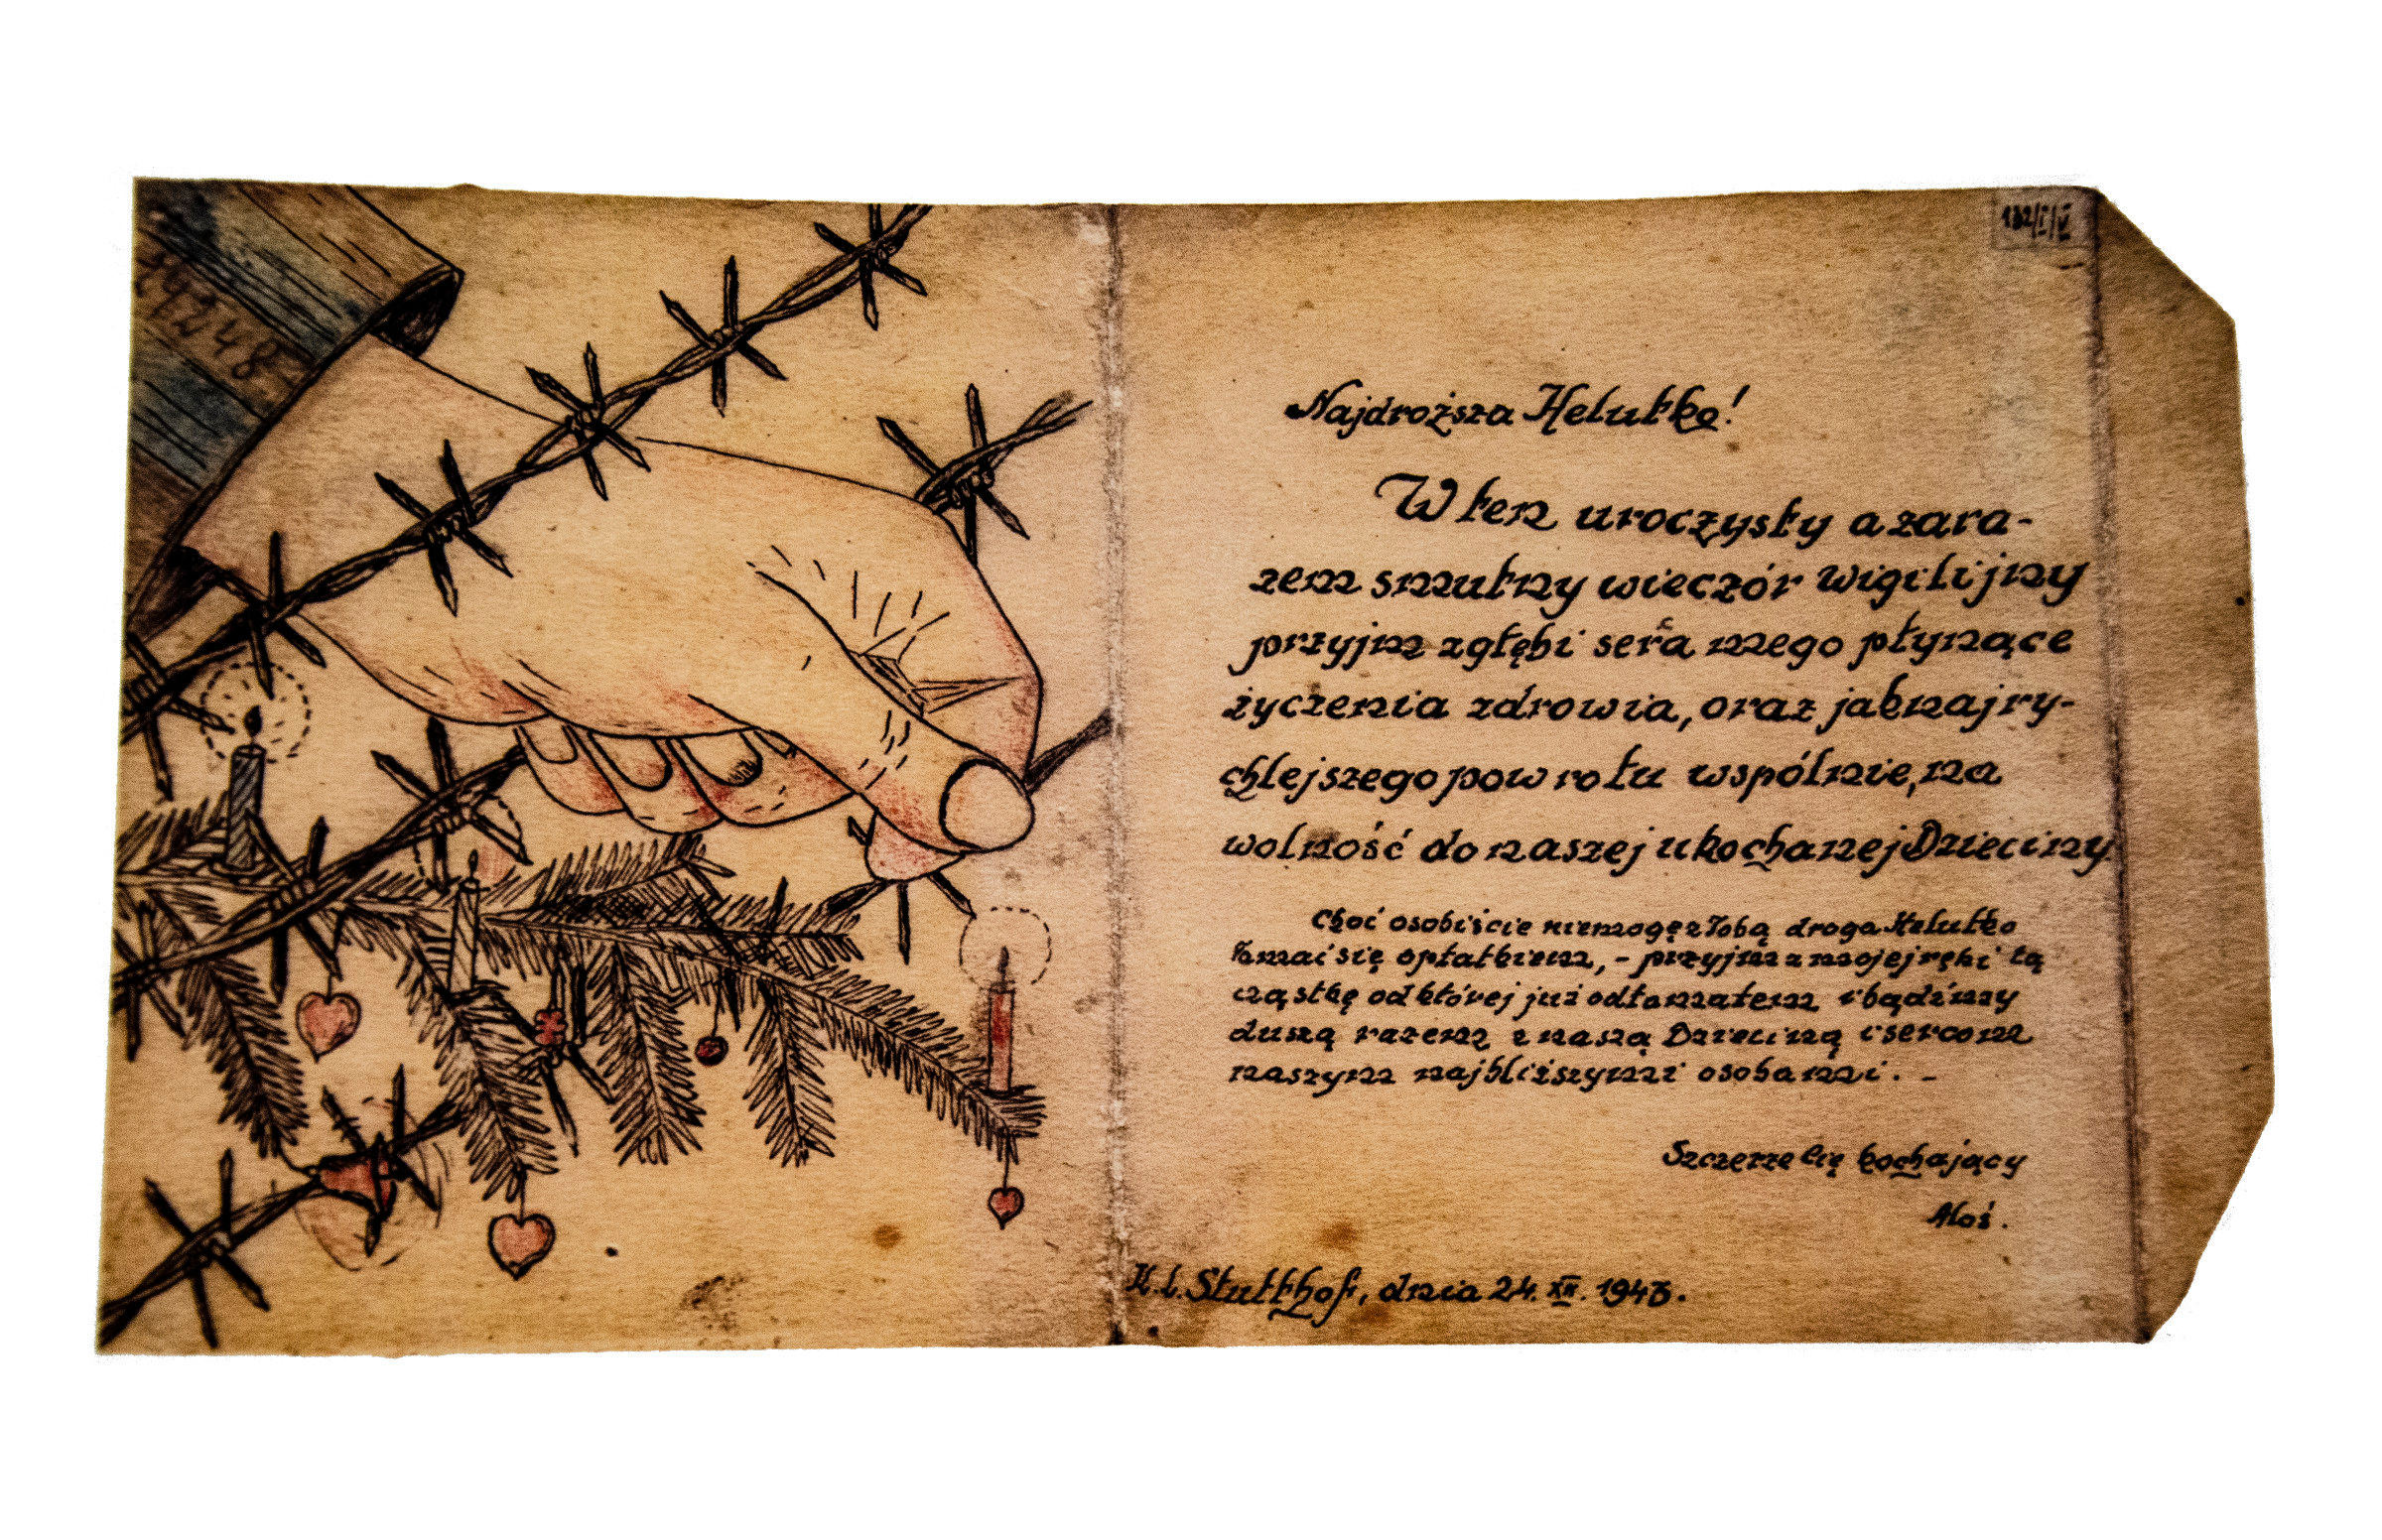 Najdroższa Helutko!
W ten uroczysty a zara-
zem smutny wieczór wigilijny
przyjm z głębi serca mego płynące
życzenia zdrowia, oraz jaknajry-
chlejszego powrotu wspólnie, na
wolność do naszej ukochanej Dzieciny
Choć osobiście niemogę z Tobą droga Helutko
łamać się opłatkiem, - przyjm z mojej ręki tą
cząstkę od której już odłamałem i bądźmy
duszą razem z naszą Dzieciną i sercom
naszym najbliższymi osobami. -
Szczerze Cię kochający
Aloś.
K.L. Stutthof, dnia 24. XII. 1943.